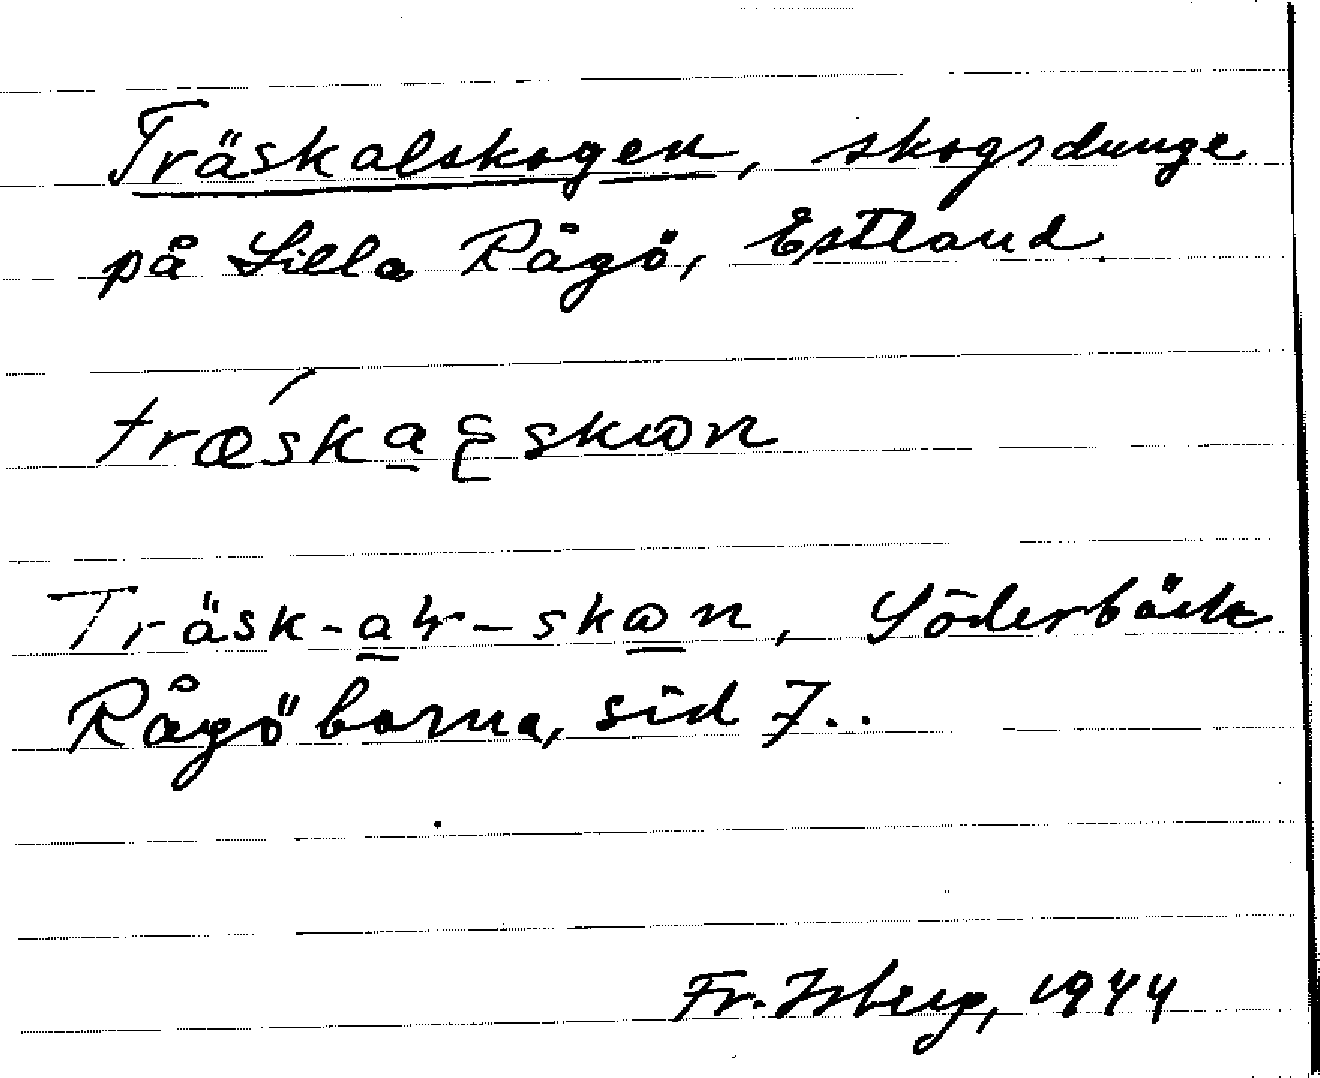 Träskalskogen, skogsdunge
på Lilla Rågö, Estland.
Träsk-a̲
Söderbäck
Rågöborna, sid 7..
Fr. Isberg, 1944